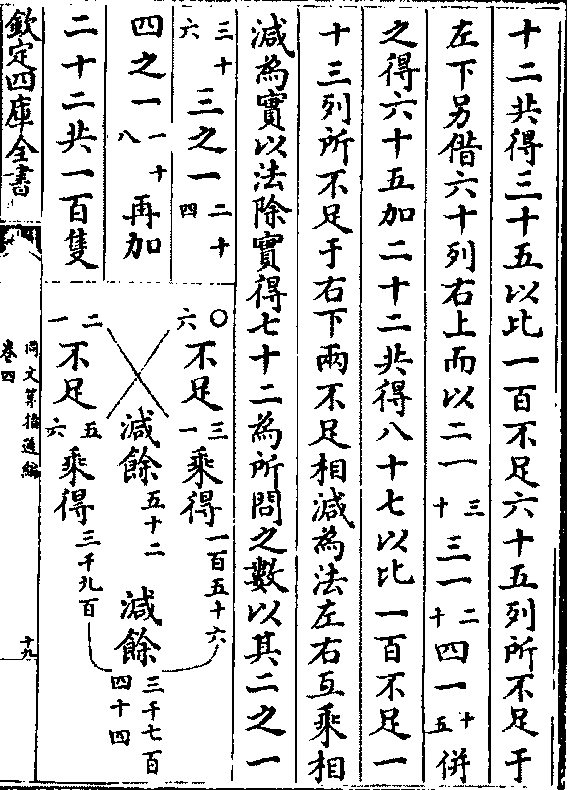 十二共得三十五以比一百不足六十五列所不足于
左下另借六十列右上而以二一三十三一二十四一十五併
之得六十五加二十二共得八十七以比一百不足一
十三列所不足于右下兩不足相減為法左右互乘相
減為實以法除實得七十二為所問之數以其二之一
三十六三之一二十四
四之一一十八再加
二十二共一百隻
六〇不足一三乘得一百五十六
減餘五十二減餘三千七百四十四
一二不足六五乘得三千九百
欽定四庫全書
同文算指通編
卷四
十九